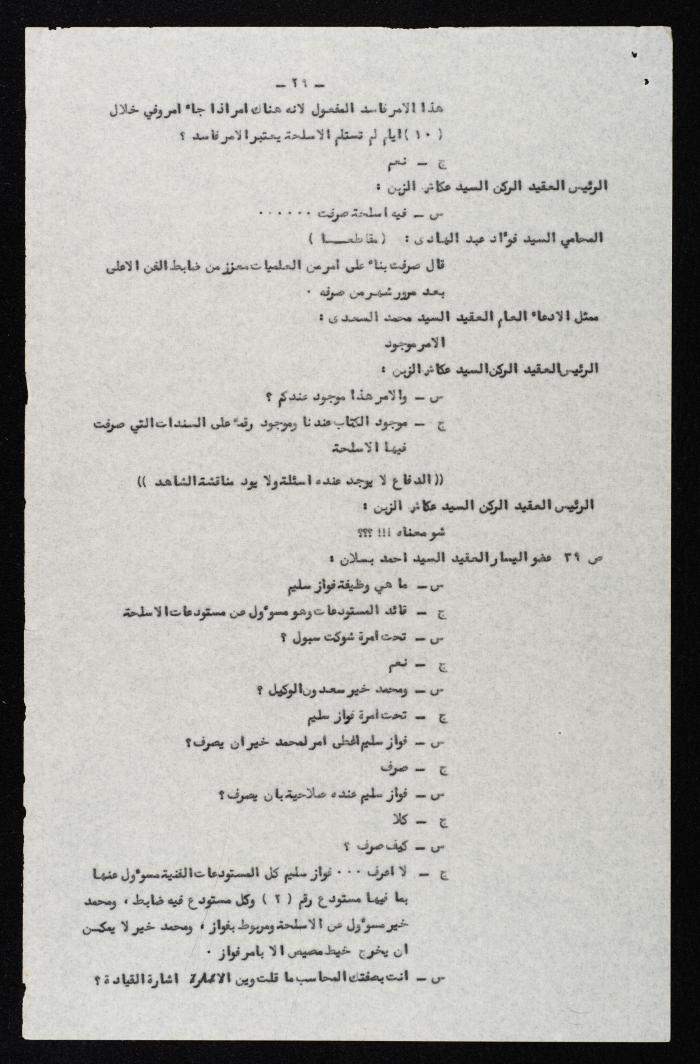 - ٢٩ -
هذا الامر فاسد المفعول لانه هناك امر اذا جاء امر وفي خلال
( ١٠ ) ايام لم تستلم الاسلحة يعتبر الامر فاسد ؟
ج - نعم
الرئيس العقيد الركن السيد عكاش الزين :
س - فيه اسلحة صرفت ٠٠٠٠٠٠
المحامي السيد فؤاد عبد الهادى : ( مقاطعـــا )
قال صرفت بناء على امر من العلميات معزز من ضابط الفن الاعلى
بعد مرور شهر من صرفه ٠
ممثل الادعاء العام العقيد السيد محمد السعدى :
الامر موجود
الرئيس العقيد الركن السيد عكاش الزين :
س - والامر هذا موجود عندكم ؟
ج - موجود الكتاب عندنا وموجود رقمه على السندات التي صرفت
فيها الاسلحة
(( الدفاع لا يوجد عنده اسئلة ولا يود مناقشة الشاهد ))
الرئيس العقيد الركن السيد عكاش الزين :
شو معناه !!! ؟؟؟
ص ٣٩ عضو اليسار العقيد السيد احمد بسلان :
س - ما هي وظيفة فواز سليم
ج - قائد المستودعات وهو مسؤول عن مستودعات الاسلحة
س - تحت امرة شوكت سبول ؟
ج - نعم
س - ومحمد خير سعدون الوكيل ؟
ج - تحت امرة فواز سليم
س - فواز سليم اعطى امر لمحمد خير ان يصرف ؟
ج - صرف
س - فواز سليم عنده صلاحية بان يصرف ؟
ج - كلا
س - كيف صرف ؟
ج - لا اعرف ٠٠٠ فواز سليم كل المستودعات الفنية مسؤول عنها
بما فيها مستودع رقم ( ٢ ) وكل مستودع فيه ضابط ، ومحمد
خير مسؤول عن الاسلحة ومربوط بفواز ، ومحمد خير لا يمكن
ان يخرج خيط مصيص الا بامر فواز ٠
س - انت بصفتك المحاسب ما قلت وين اشارة القيادة ؟